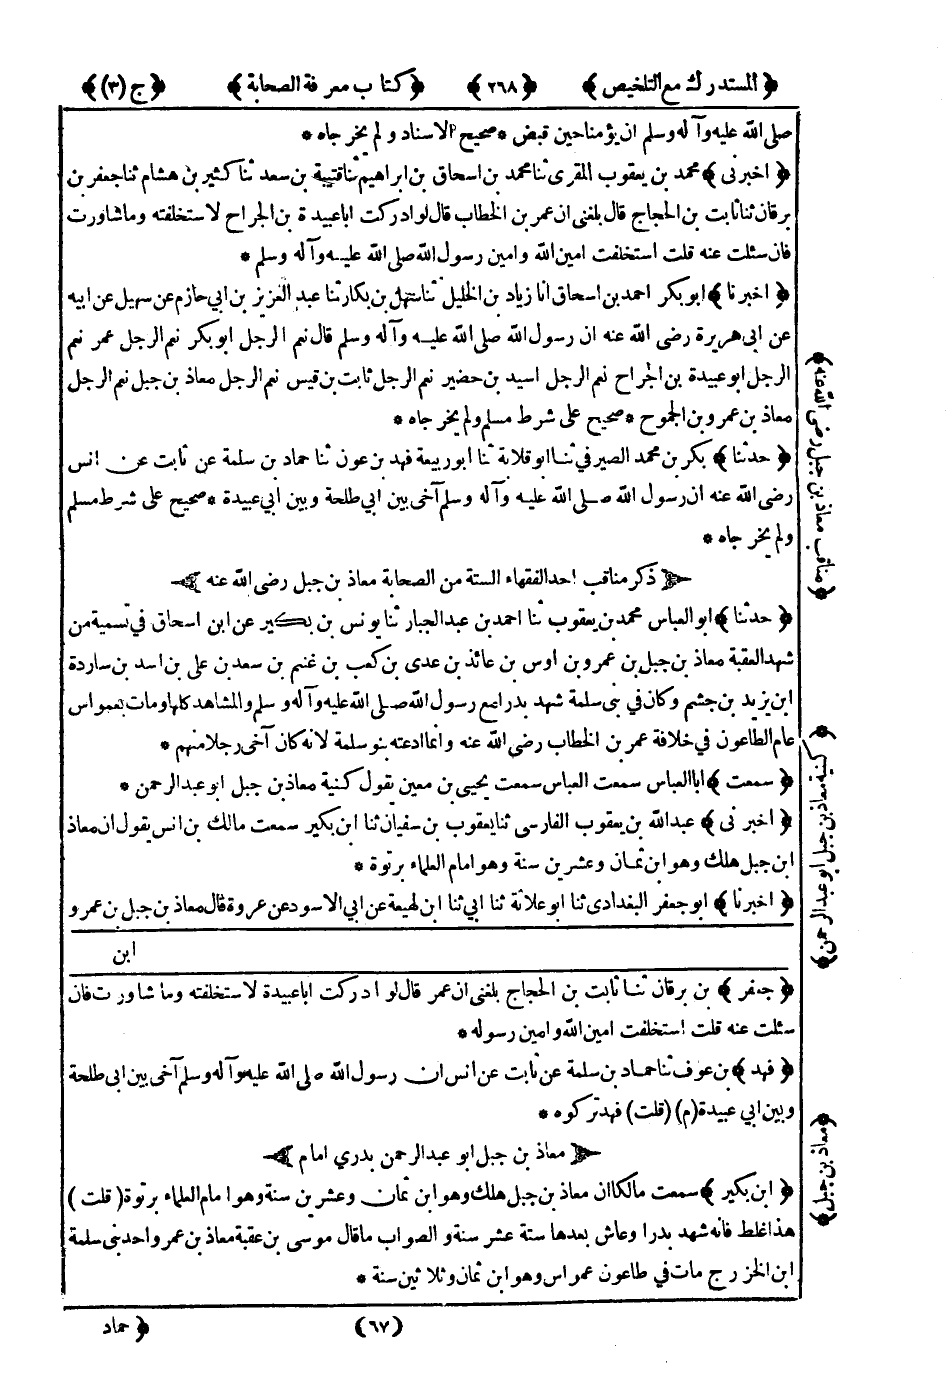 ﴿ المستدرك مع التلخيص ﴾ ﴿ ٢٦٨ ﴾ ﴿ كتاب معرفة الصحابة ﴾ ﴿ ج (٣) ﴾
صلى الله عليه وآله وسلم ان يؤمنا حين قبض * صحيح الاسناد ولم يخرجاه *
﴿ اخبرنى ﴾ محمد بن يعقوب المقرى ثنا محمد بن اسحاق بن ابراهيم ثنا قتيبة بن سعد ثنا كثير بن هشام ثنا جعفر بن
برقان ثنا ثابت بن الحجاج قال بلغنى ان عمر بن الخطاب قال لو ادركت ابا عبيدة بن الجراح لاستخلفته وما شاورت
فان سئلت عنه قلت استخلفت امين الله وامين رسول الله صلى الله عليه وآله وسلم *
﴿ اخبرنا ﴾ ابو بكر احمد بن اسحاق انا زياد بن الخليل ثنا سهل بن بكار ثنا عبد العزيز بن ابي حازم عن سهيل عن ابيه
عن ابى هريرة رضى الله عنه ان رسول الله صلى الله عليه وآله وسلم قال نعم الرجل ابو بكر نعم الرجل عمر نعم
الرجل ابو عبيدة بن الجراح نعم الرجل اسيد بن حضير نعم الرجل ثابت بن قيس نعم الرجل معاذ بن جبل نعم الرجل
معاذ بن عمرو بن الجموح * صحيح على شرط مسلم ولم يخرجاه *
﴿ حدثنا ﴾ بكر بن محمد الصيرفى ثنا ابو قلابة ثنا ابو ربيعة فهد بن عون ثنا حماد بن سلمة عن ثابت عن انس
رضى الله عنه ان رسول الله صلى الله عليه وآله وسلم آخى بين ابي طلحة وبين ابي عبيدة * صحيح على شرط مسلم
ولم يخرجاه *
﴿ ذكر مناقب احد الفقهاء الستة من الصحابة معاذ بن جبل رضى الله عنه ﴾
﴿ حدثنا ﴾ ابو العباس محمد بن يعقوب ثنا احمد بن عبد الجبار ثنا يونس بن بكير عن ابن اسحاق في تسمية من
شهد العقبة معاذ بن جبل بن عمرو بن اوس بن عائذ بن عدى بن كعب بن غنم بن سعد بن على بن اسد بن ساردة
ابن يزيد بن جشم وكان في بنى سلمة شهد بدرا مع رسول الله صلى الله عليه وآله وسلم والمشاهد كلها ومات بعمواس
عام الطاعون في خلافة عمر بن الخطاب رضى الله عنه وانما ادعته بنو سلمة لانه كان آخى رجلا منهم *
﴿ سمعت ﴾ ابا العباس سمعت العباس سمعت يحيى بن معين يقول كنية معاذ بن جبل ابو عبد الرحمن *
﴿ اخبرنى ﴾ عبد الله بن يعقوب الفارسى ثنا يعقوب بن سفيان ثنا ابن بكير سمعت مالك بن انس يقول ان معاذ
ابن جبل هلك وهو ابن ثمان وعشرين سنة وهو امام العلماء برتوة *
﴿ اخبرنا ﴾ ابو جعفر البغدادى ثنا ابو علاثة ثنا ابي ثنا ابن لهيعة عن ابي الاسود عن عروة قال معاذ بن جبل بن عمرو
ابن
﴿ جعفر ﴾ بن برقان ثنا ثابت بن الحجاج بلغنى ان عمر قال لو ادركت ابا عبيدة لاستخلفته وما شاورت فان
سئلت عنه قلت استخلفت امين الله وامين رسوله *
﴿ فهد ﴾ بن عوف ثنا حماد بن سلمة عن ثابت عن انس ان رسول الله صلى الله عليه وآله وسلم آخى بين ابى طلحة
وبين ابي عبيدة (م) (قلت) فهد تركوه *
﴿ معاذ بن جبل ابو عبد الرحمن بدري امام ﴾
﴿ ابن بكير ﴾ سمعت مالكا ان معاذ بن جبل هلك وهو ابن ثمان وعشرين سنة وهو امام العلماء برتوة (قلت)
هذا غلط فانه شهد بدرا وعاش بعدها ستة عشر سنة والصواب ما قال موسى بن عقبة معاذ بن عمرو احد بنى سلمة
ابن الخزرج مات في طاعون عمواس وهو ابن ثمان وثلاثين سنة *
(٦٧)
﴿ حماد
﴿ مناقب معاذ بن جبل رضى الله عنه ﴾
﴿ كنية معاذ بن جبل ابو عبد الرحمن ﴾
﴿ معاذ بن جبل ﴾